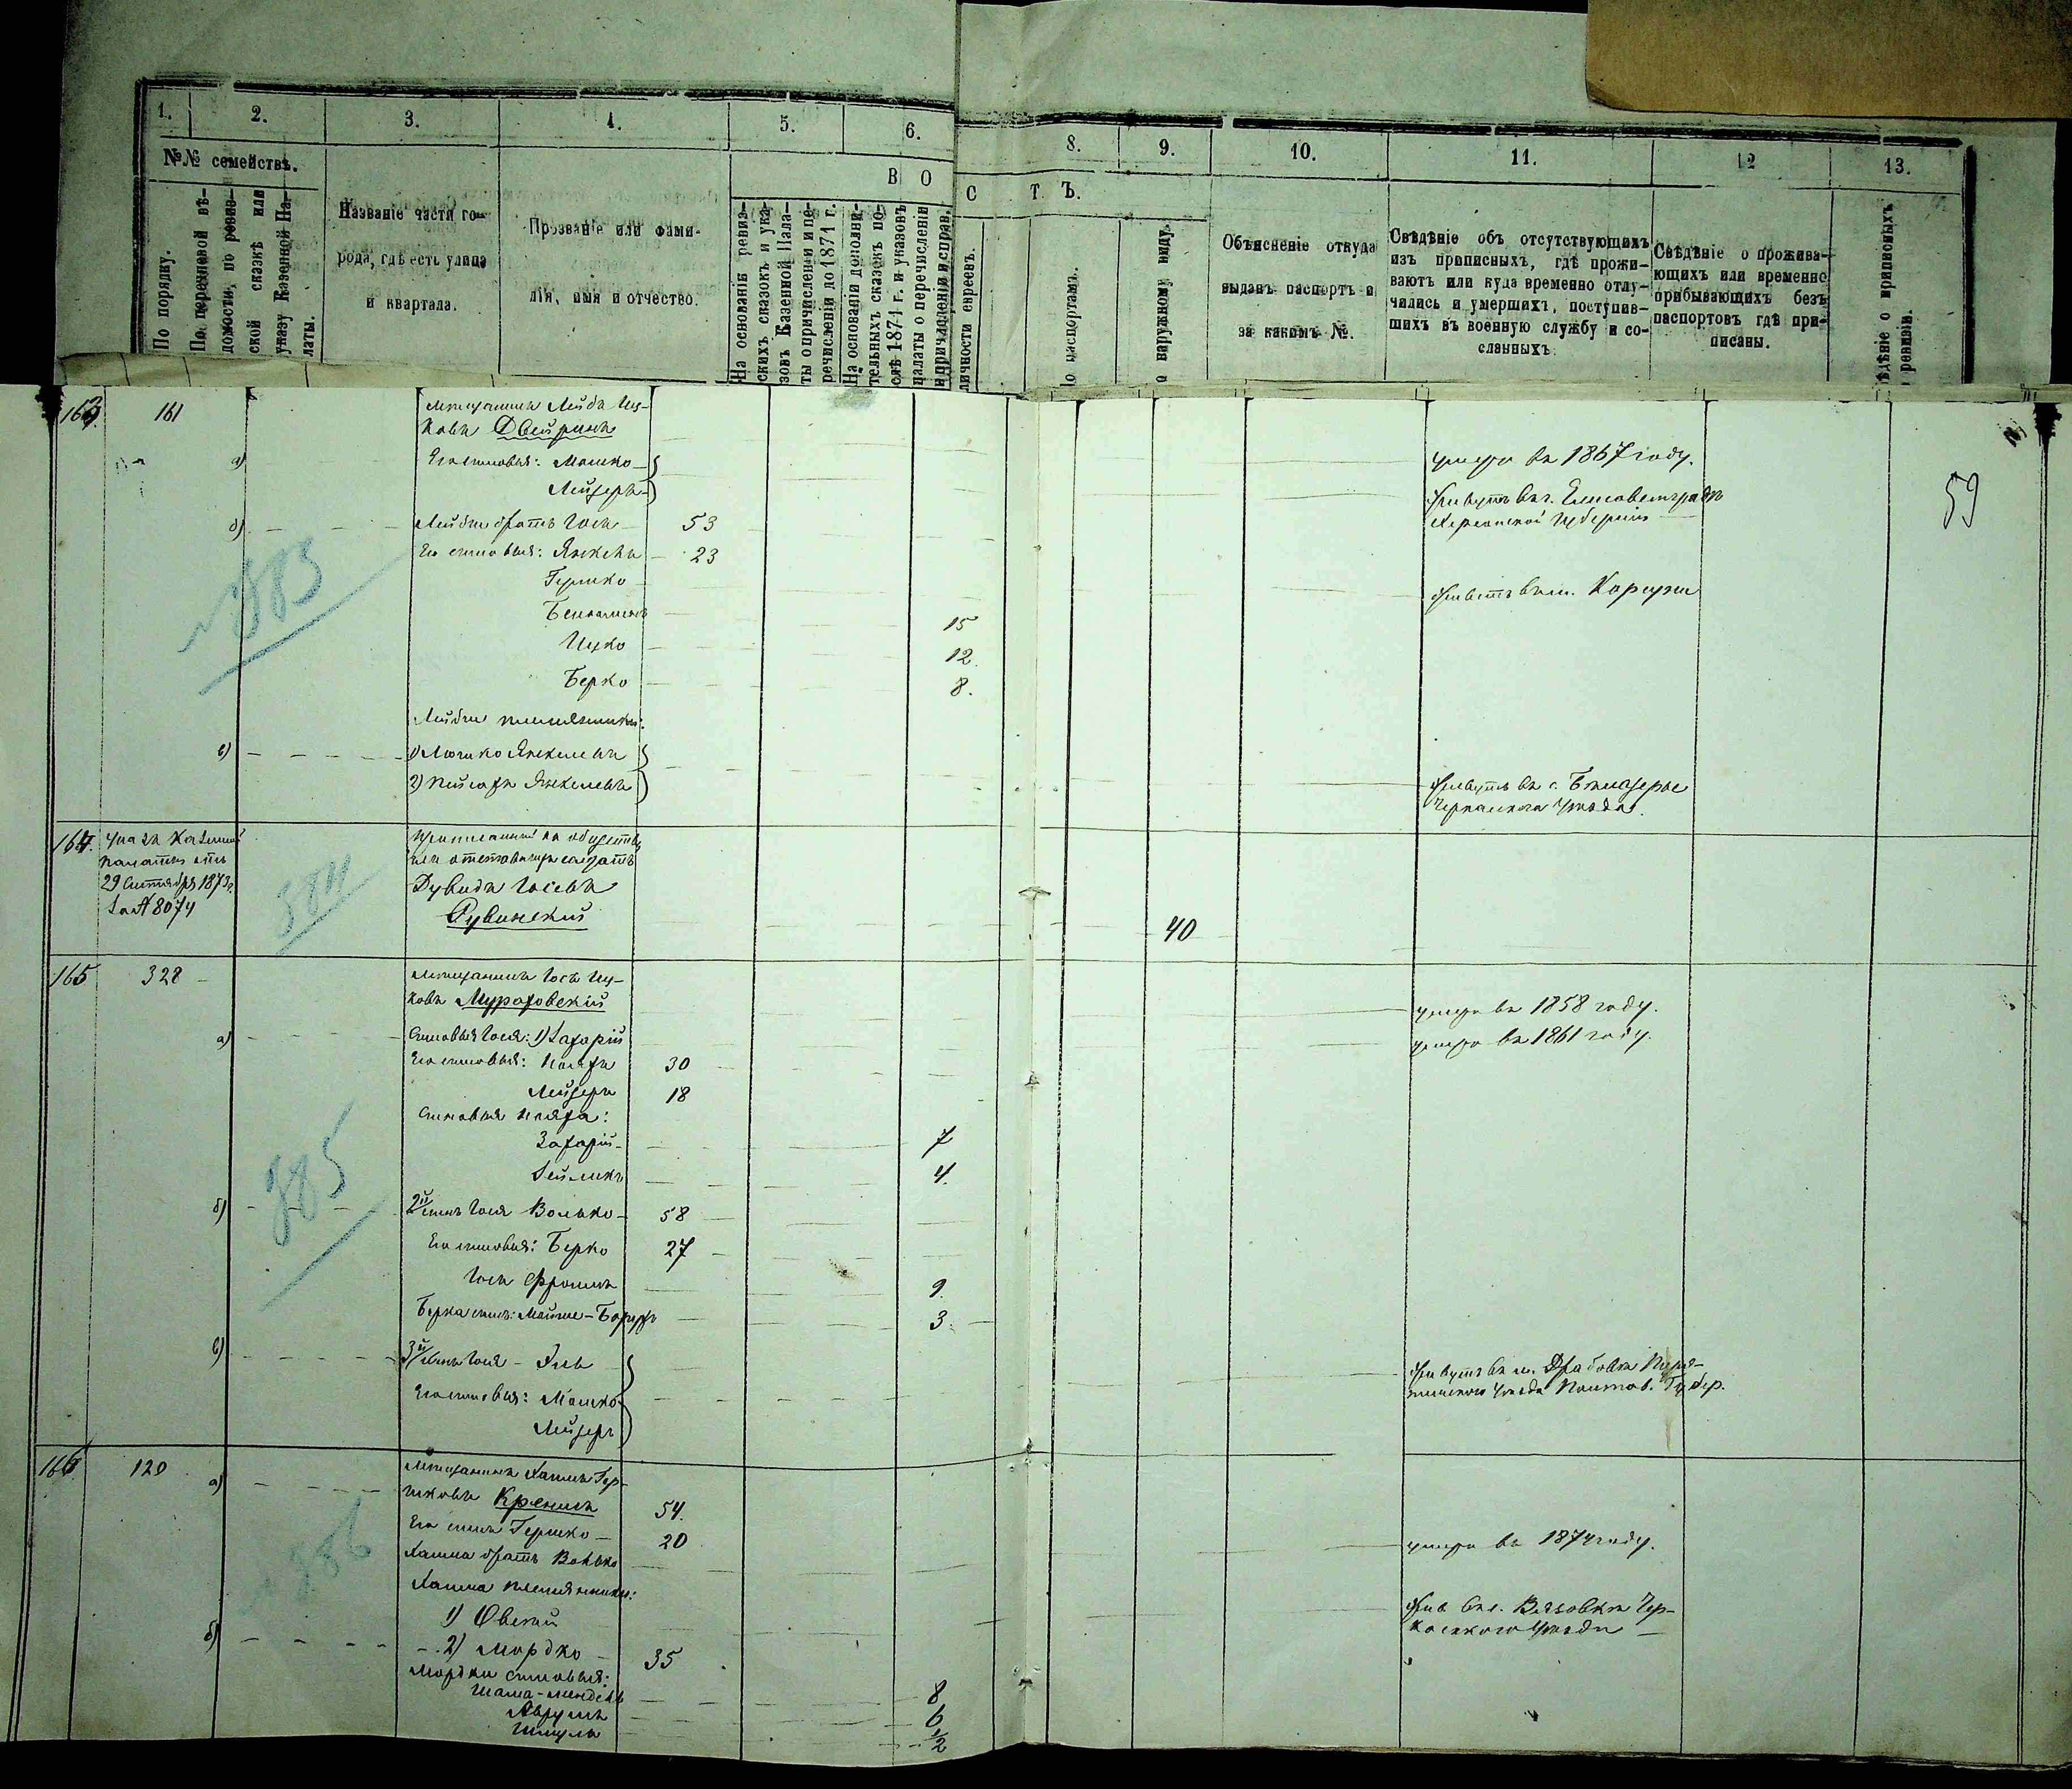 1.
2.
3.
4.
5.
6.
8.
9.
10.
11.
12
13.
№№ семействъ.
По порядку.
По перечневой вѣ-
домости, по ревиз-
ской сказкѣ или
указу Казенной Па-
латы.
Названіе части го-
рода, гдѣ есть улица
и квартала.
Прозваніе или фами-
лія, имя и отчество.
В О
С Т Ъ.
На основаніи ревиз-
скихъ сказокъ и ука-
зовъ Казенной Пала-
ты о причисленіи и пе-
речисленіи до 1874 г.
На основаніи дополни-
тельныхъ сказокъ по-
слѣ 1874 г. и указовъ
палаты о перечисленіи
и причисленіи и справ.
личности евреевъ.
о паспортамъ.
о наружному виду.
Объясненіе откуда
выданъ паспортъ и
за какимъ №.
Свѣдѣніе объ отсутствующихъ
изъ приписныхъ, гдѣ прожи-
ваютъ или куда временно отлу-
чились и умершихъ, поступив-
шихъ въ военную службу и со-
сланныхъ
Свѣдѣніе о прожива-
ющихъ или временно
прибывающихъ безъ
паспортовъ гдѣ при-
писаны.
ѣдѣніе о приписныхъ
ревизіи.
59
163. 161
мѣщанинъ Лейба Иц-
ковъ Двейринъ
умеръ въ 1867 году.
а) Его сыновья: Мошко
Лейзеръ
живутъ въ г. Елисаветградѣ
Херсонской губерніи
б) Лейбы братъ Іось 53
Его сыновья: Янкель 23
Гершко
живетъ въ м.
Беньяминъ 15
Ицко 12.
Берко 8.
Лейбы племянники:
в) 1) Янкелевъ
2) Янкелевъ
живутъ въ с. Бѣлозерье
Черкасскаго уѣзда.
383
164. Указъ Казенной
палаты отъ
29 Сентября 1873 г.
за № 8074
384
приписанный къ обществу
отставной солдатъ
Дувидъ Іосевъ
Рувинскій
40
165 328
мѣщанинъ Іось Иц-
ковъ Мураховскій
умеръ въ 1858 году.
а) Сыновья Іося: 1) Захарій
умеръ въ 1861 году.
Его сыновья: 30
Лейзеръ 18
Сыновья
Захарій 7
Зейликъ 4.
385
б) 2й сынъ Іося Волько 58
Его сыновья: Берко 27
Іось Фроимъ 9.
Берка сынъ: Мойше-Борухъ 3
в) 3й сынъ Іося
Его сыновья: Мошко
Лейзеръ
живутъ въ м. Драбовѣ Пиря-
тинскаго уѣзда Полтав. Губер.
166. 120
а) мѣщанинъ Хаимъ Гер-
шковъ 54.
Его сынъ Гершко 20
Хаима братъ Волько
умеръ въ 1874 году.
Хаима племянники:
1) Овсей
жив. въ с. Вязовкѣ Чер-
касскаго уѣзда
б) 2) Мордко 35
Мордки сыновья:
Шама-Мендель 8
Аврумъ 6
Шмуль 1/2
386